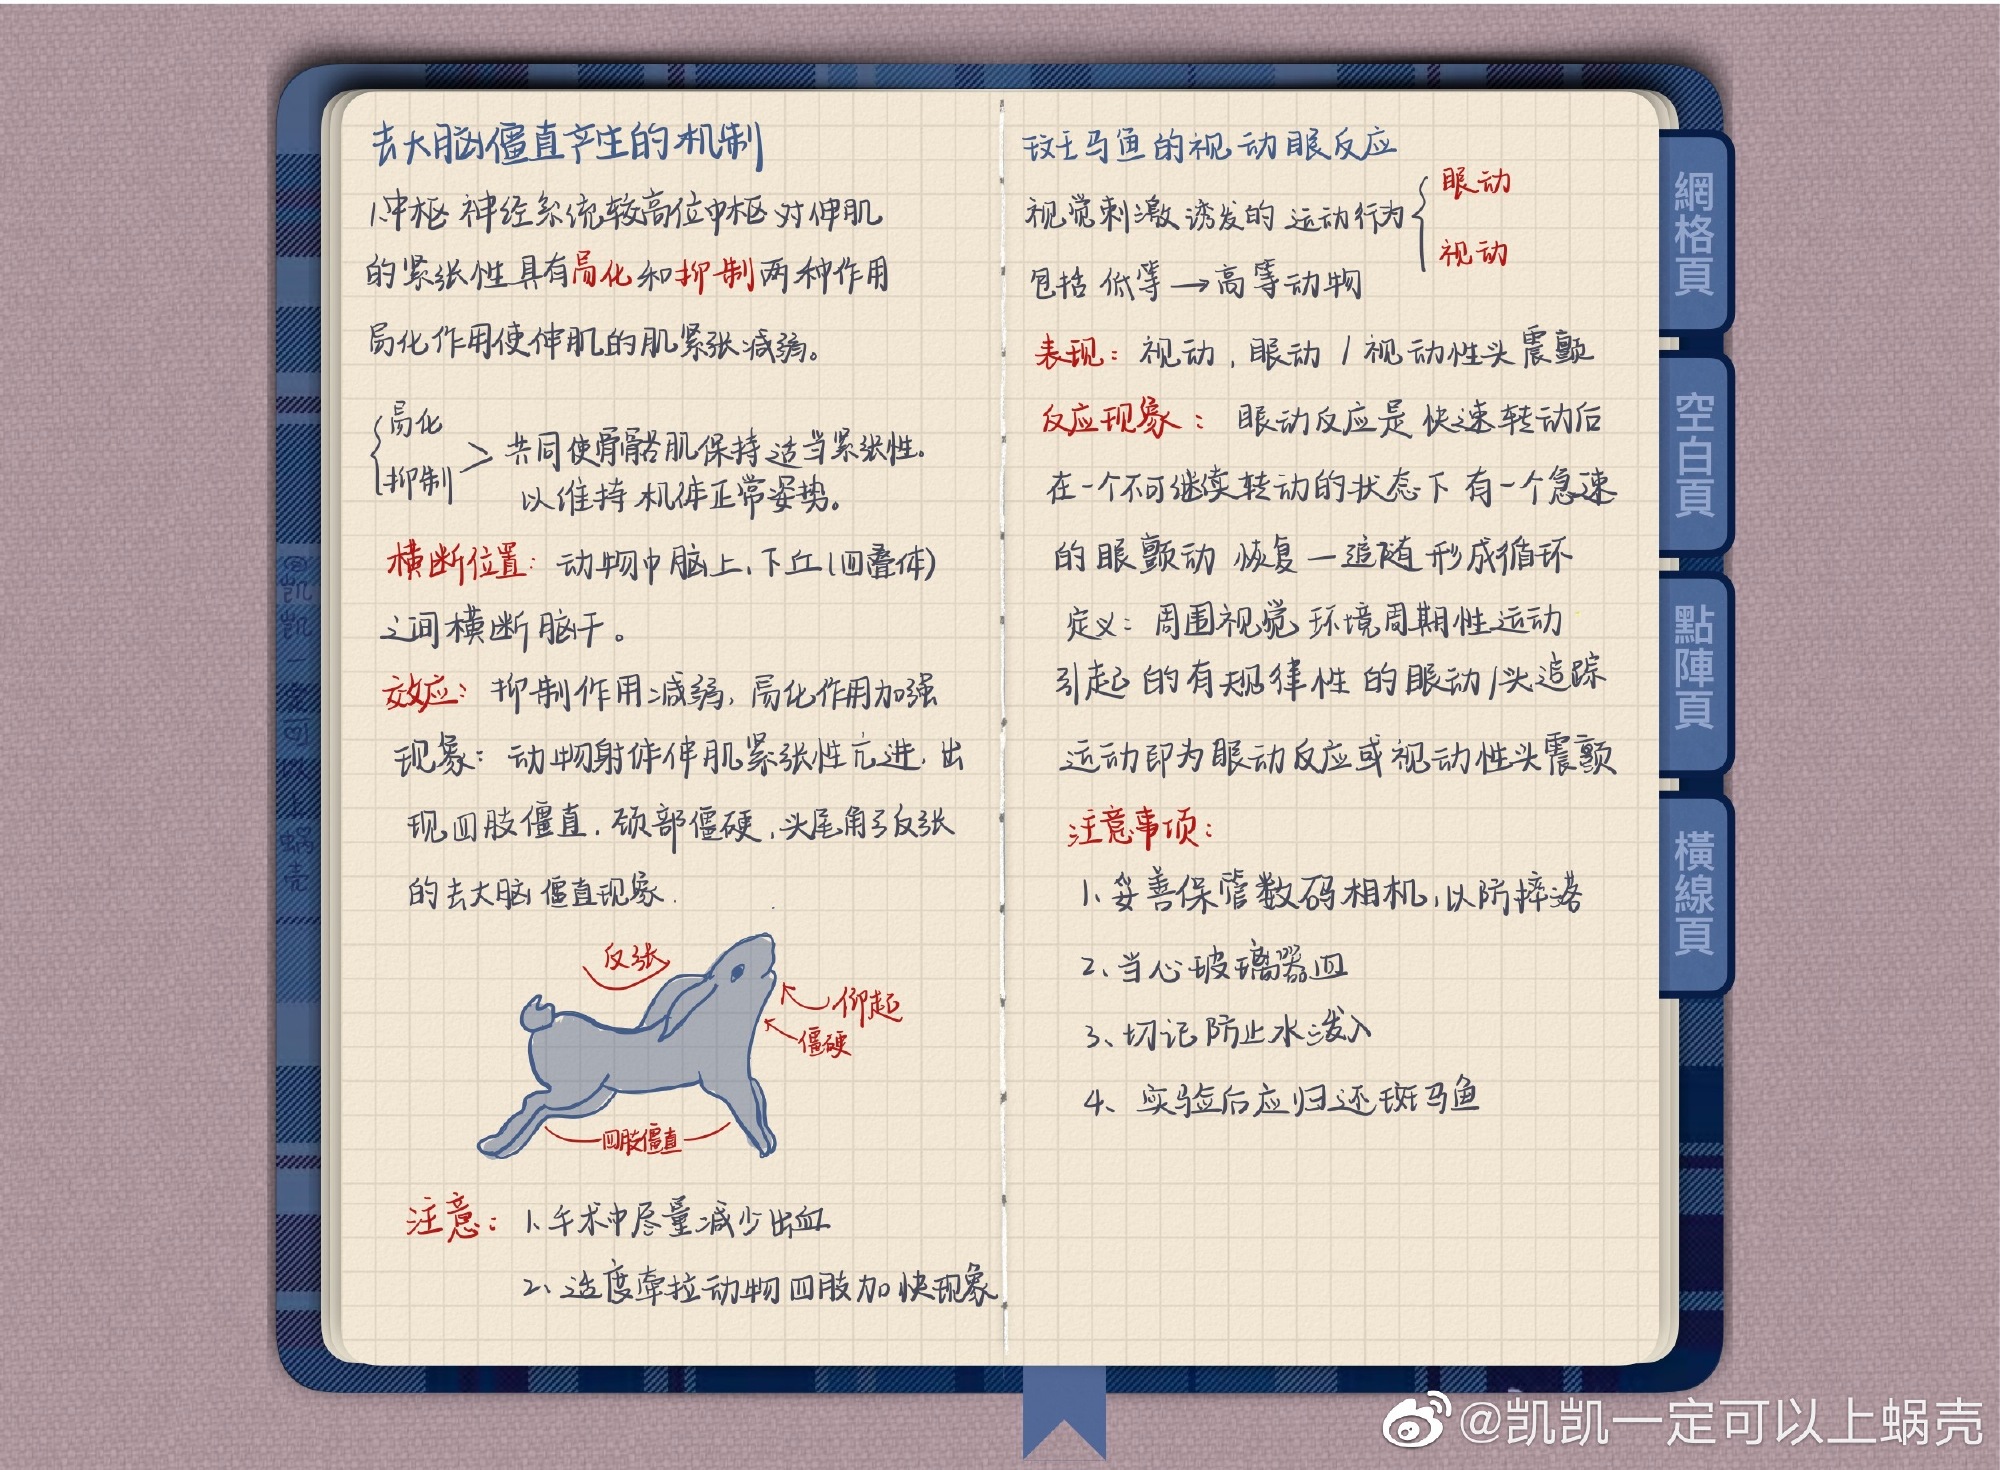 去大脑僵直产生的机制
1.中枢神经系统较高位中枢对伸肌
的紧张性具有易化和抑制两种作用
易化作用使伸肌的肌紧张减弱。
易化
抑制
共同使骨骼肌保持适当紧张性.
以维持机体正常姿势。
横断位置: 动物中脑上、下丘(四叠体)
之间横断脑干。
效应: 抑制作用减弱, 易化作用加强
现象: 动物身体伸肌紧张性亢进, 出
现四肢僵直, 颈部僵硬, 头尾角弓反张
的去大脑僵直现象.
反张
仰起
僵硬
四肢僵直
注意: 1.手术中尽量减少出血
2、适度牵拉动物四肢加快现象
斑马鱼的视动眼反应
视觉刺激诱发的运动行为
眼动
视动
包括低等→高等动物
表现: 视动, 眼动/视动性头震颤
反应现象: 眼动反应是快速转动后
在一个不可继续转动的状态下有一个急速
的眼颤动恢复—追随形成循环
定义: 周围视觉环境周期性运动
引起的有规律性的眼动/头追踪
运动即为眼动反应或视动性头震颤
注意事项:
1、妥善保管数码相机,以防摔落
2、当心玻璃器皿
3、切记防止水泼入
4、实验后应归还斑马鱼
網格頁
空白頁
點陣頁
橫線頁
@凯凯一定可以上蜗壳
@凯凯一定可以上蜗壳